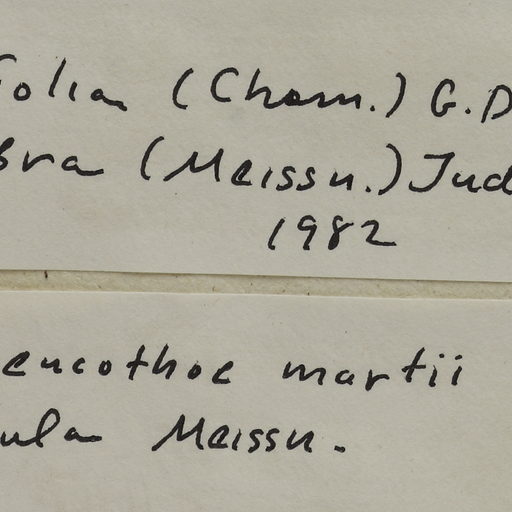 folia (Cham.) G.D
bra (Meissn.) Jud
1982
eucothoe martii
ula Meissn.